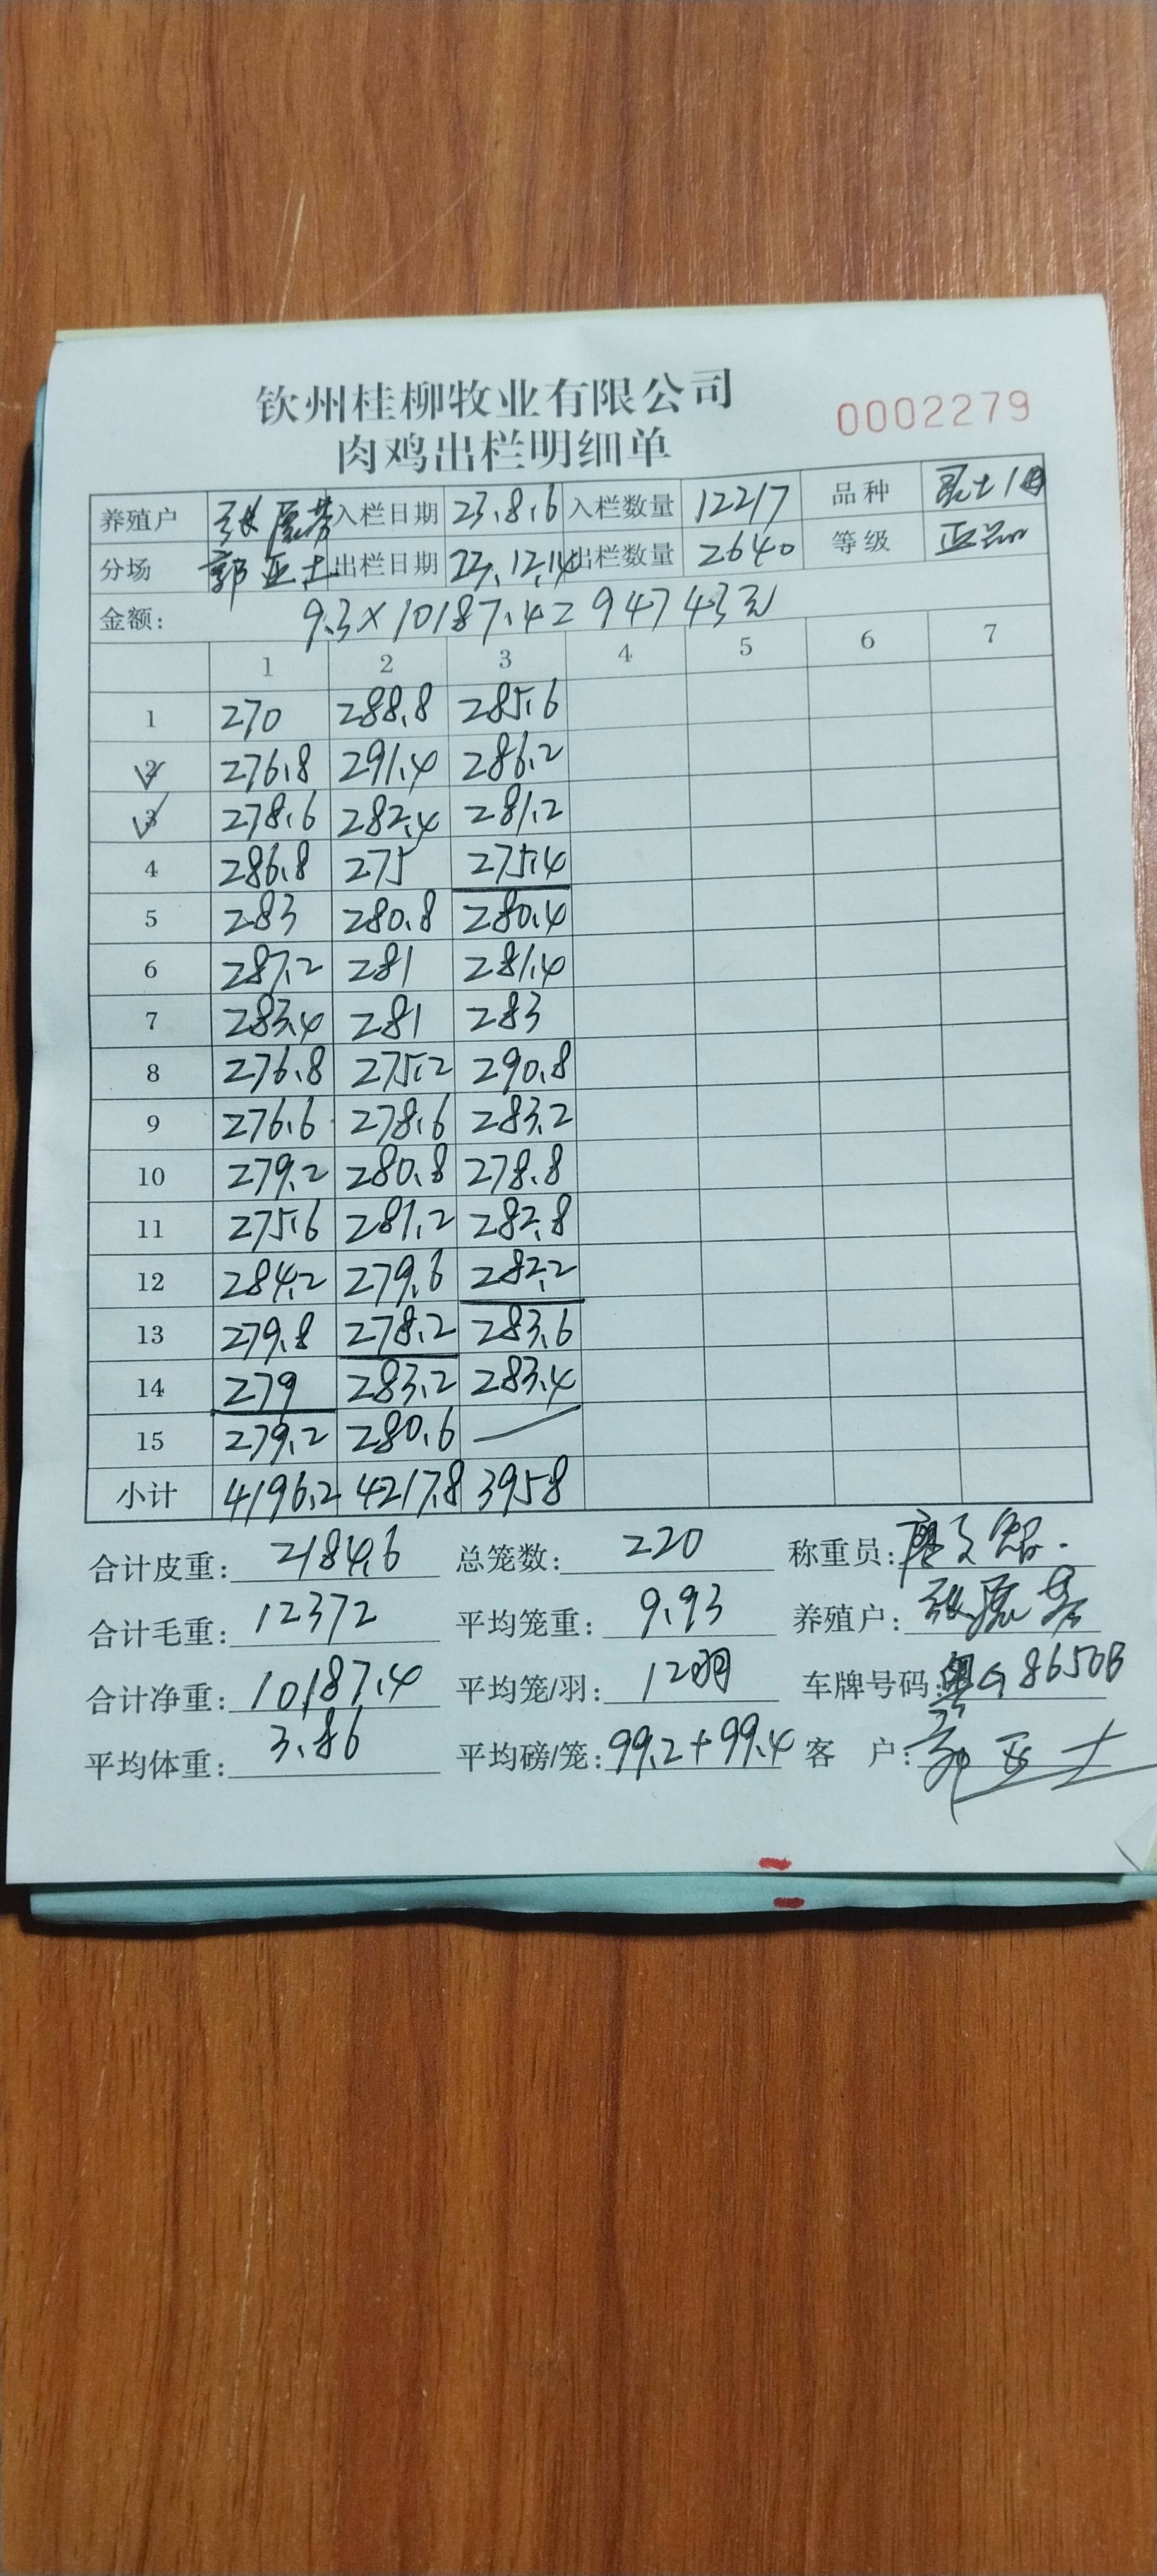 钦州桂柳牧业有限公司
肉鸡出栏明细单
0002279
养殖户 张 入栏日期 23.8.6 入栏数量 12217 品种
分场 郭亚士 出栏日期 23.12.14 出栏数量 2640 等级 正品
金额: 9.3×10187.4=94743元
1 2 3 4 5 6 7
1 270 288.8 285.6
2 276.8 291.4 286.2
3 278.6 282.4 281.2
4 286.8 275 275.4
5 283 280.8 280.4
6 287.2 281 281.4
7 283.4 281 283
8 276.8 275.2 290.8
9 276.6 278.6 283.2
10 279.2 280.8 278.8
11 275.6 281.2 282.8
12 284.2 279.6 282.2
13 279.8 278.2 283.6
14 279 283.2 283.4
15 279.2 280.6 —
小计 4196.2 4217.8 3958
合计皮重: 2184.6 总笼数: 220 称重员:
合计毛重: 12372 平均笼重: 9.93 养殖户: 张
合计净重: 10187.4 平均笼/羽: 12羽 车牌号码: 粤G8650B
平均体重: 3.86 平均磅/笼: 99.2+99.4 客 户: 郭亚士